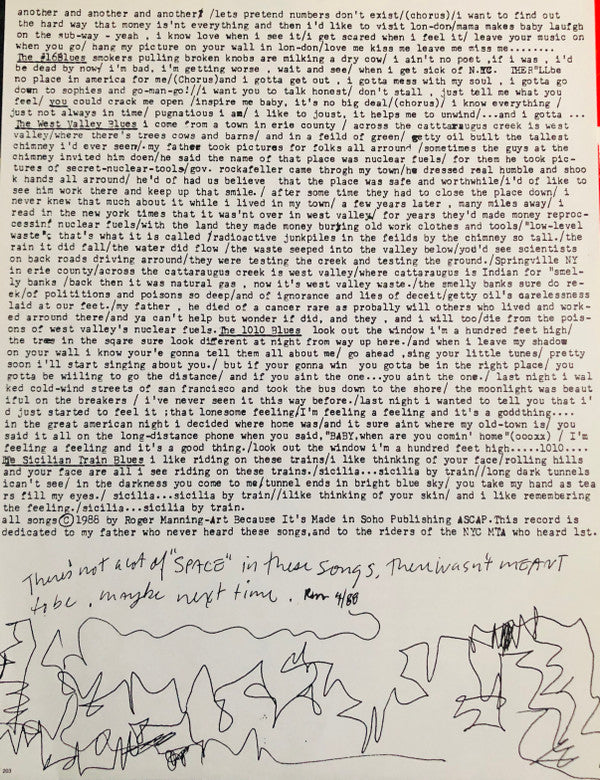 another and another and another/ /lets pretend numbers don't exist/(chorus)/i want to find out
the hard way that money is'nt everything and then i'd like to visit lon-don/mama makes baby laufgh
on the sub-way - yeah , i know love when i see it/i get scared when i feel it/ leave your music on
when you go/ hang my picture on your wall in lon-don/love me kiss me leave me miss me........
The #16Blues smokers pulling broken knobs are milking a dry cow/ i ain't no poet ,if i was , i'd
be dead by now/ i'm bad, i'm getting worse , wait and see/ when i get sick of N.YC. THER"LLbe
no place in america for me/(Chorus)and i gotta get out , i gotta mess with my soul , i gotta go
down to sophies and go-man-go!//i want you to talk honest/ don't stall , just tell me what you
feel/ you could crack me open /inspire me baby, it's no big deal/(chorus)/ i know everything /
just not always in time/ pugnatious i am/ i like to joust, it helps me to unwind/...and i gotta ...
The West Valley Blues i come from a town in erie county / across the cattaraugus creek is west
valley/where there's trees cows and barns/ and in a feild of green/ getty oil built the tallest
chimney i'd ever seen/.my father took pictures for folks all arround /sometimes the guys at the
chimney invited him doen/he said the name of that place was nuclear fuels/ for them he took pic-
tures of secret-nuclear-tools/gov. rockafeller came throgh my town/he dressed real humble and shoo
k hands all arround/ he'd of had us believe that the place was safe and worthwhile/i'd of like to
see him work there and keep up that smile./ after some time they had to close the place down/ i
never knew that much about it while i lived in my town/ a few years later , many miles away/ i
read in the new york times that it was'nt over in west valley/ for years they'd made money reproc-
cessinf nuclear fuels/with the land they made money burying old work clothes and tools/"low-level
waste"; that's what it is called /radioactive junkpiles in the feilds by the chimney so tall./the
rain it did fall/the water did flow /the waste seeped into the valley below/you'd see scientists
on back roads driving arround/they were testing the creek and testing the ground./Springville NY
in erie county/across the cattaraugus creek is west valley/where cattaraugus is Indian for "smel-
ly banks /back then it was natural gas , now it's west valley waste./the smelly banks sure do re-
ek/of polititions and poisons so deep/and of ignorance and lies of deceit/getty oil's carelessness
laid at our feet./my father , he died of a cancer rare as probably will others who lived and work-
ed arround there/and ya can't help but wonder if did, and they , and i will too/die from the pois-
ons of west valley's nuclear fuels.The 1010 Blues look out the window i'm a hundred feet high/
the tree in the sqare sure look different at night from way up here./and when i leave my shadow
on your wall i know your'e gonna tell them all about me/ go ahead ,sing your little tunes/ pretty
soon i'll start singing about you./ but if your gonna win you gotta be in the right place/ you
gotta be willing to go the distance/ and if you aint the one...you aint the one./ last night i wal
ked cold-wind streets of san francisco and took the bus down to the shore/ the moonlight was beaut
iful on the breakers / i've never seen it this way before./last night i wanted to tell you that i'
d just started to feel it ;that lonesome feeling/I'm feeling a feeling and it's a goddthing....
in the great american night i decided where home was/and it sure aint where my old-town is/ you
said it all on the long-distance phone when you said,"BABY,when are you comin' home"(ooxx) / I'm
feeling a feeling and it's a good thing./look out the window i'm a hundred feet high.....1010....
The Sicilian Train Blues i like riding on these trains/i like thinking of your face/rolling hills
and your face are all i see riding on these trains./sicilia...sicilia by train//long dark tunnels
ican't see/ in the darkness you come to me/tunnel ends in bright blue sky/ you take my hand as tea
rs fill my eyes./ sicilia...sicilia by train//ilike thinking of your skin/ and i like remembering
the feeling./sicilia...sicilia by train.
all songs©1988 by Roger Manning-Art Because It's Made in Soho Publishing ASCAP.This record is
dedicated to my father who never heard these songs,and to the riders of the NYC MTA who heard 1st.
There's not a lot of "SPACE" in these songs, There wasn't MEANT
to be. maybe next time. Rm 4/88
203